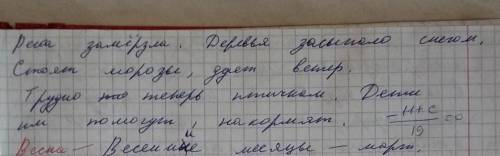 Река замёрзла. Деревья засыпало снегом.
Стоят морозы, дует ветер.
Трудно теперь птичкам. Дети
им помогут, накормят.
Весна – Весенний месяцы – март.